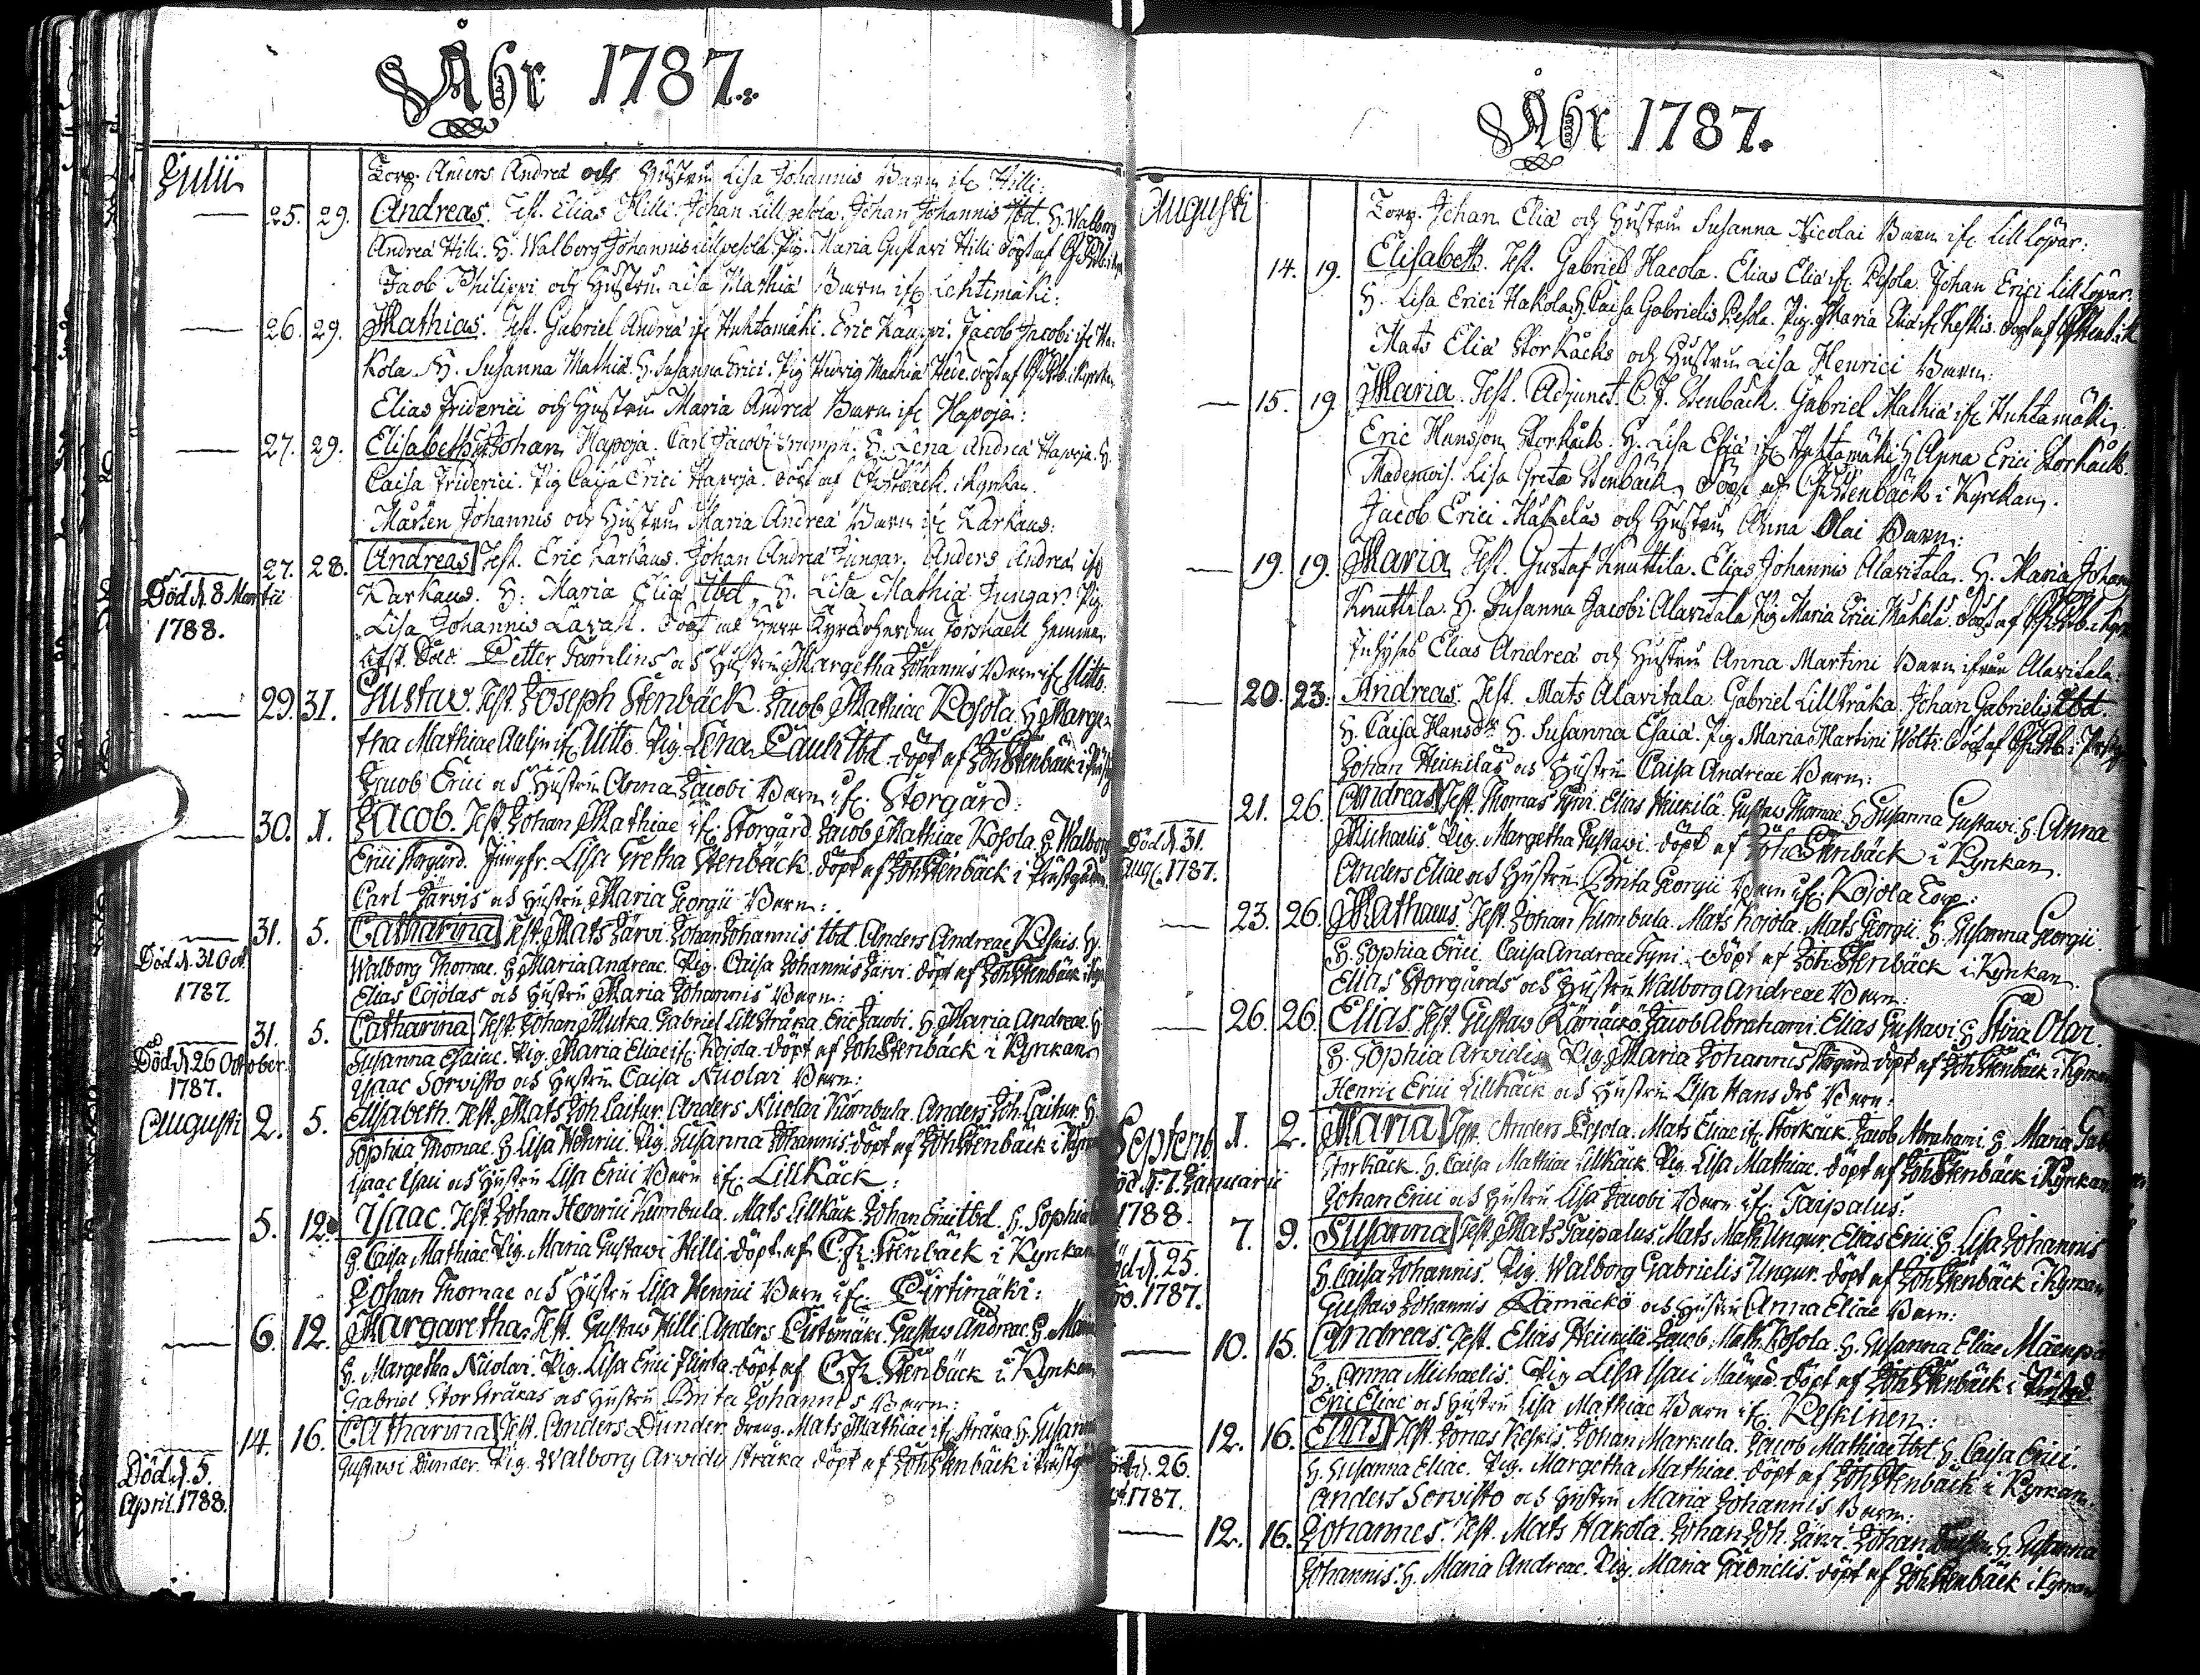 Åhr 1787.
Julii
Torp. Anders Andreä och Hustru Lisa Johannis Barn ifr. Hilli:
25. 29. Andreas. Test. Elias Hilli. Johan Lillpesola. Johan Johannis Ibd. H. Walborg
Andreä Hilli. H. Walborg Johannis Lillpesola. Pig. Maria Gustavi Hilli döpt af
Jacob Philippi och Hustru Lisa Mathiä Barn ifr.
26. 29. Mathias. Test. Gabriel Andreä ifr. Huhtamäki. Eric Kauppi. Jacob Jacobi ifr. Ha-
kola. H. Susanna Mathiä. H. Susanna Erici. Pig. Hedvig Mathiä Hede. döpt af
Elias Friderici och Hustru Maria Andreä Barn ifr. Hapoja:
27. 29. Elisabeth. Test. Johan Hapoja. Carl Jacobi. H. Lena Andreä Hapoja. H.
Caisa Friderici. Pig. Caisa Erici Hapoja. döpt af Stenbäck. i Kyrkan.
Mårten Johannis och Hustru Maria Andreä Barn ifr. Karhaus:
27. 28. Andreas Test. Eric Karhaus. Johan Andreä Jungar. Anders Andreä ifr.
Död d. 8 Martii
1788.
Karhaus. H. Maria Eliä Ibd. H. Lisa Mathiä Jungar. Pig.
Lisa Johannis Lavast. döpt af Herr Kyrckoherden Forshaell hemma.
Petter Tamlins och Hustru Margetha Johannis Barn ifr. Uitto.
29. 31. Gustav. Test. Joseph Stenbäck. Jacob Mathiae Kosola. H. Marge-
tha Mathiae ifr. Uitto. Pig. Lena Ibd. döpt af Joh. Stenbäck i
Jacob Erici och Hustru Anna Jacobi Barn ifr. Storgård:
30. 1. Jacob. Test. Johan Mathiae ifr. Storgård. Jacob Mathiae Kosola. H. Walborg
Erici Storgård. Jungfr. Lisa Gretha Stenbäck. döpt af Joh. Stenbäck i Prästgården.
Carl Järvis och Hustru Maria Georgii Barn:
31. 5. Catharina Test. Mats Järvi. Johan Johannis Ibd. Anders Andreae Keskis. H.
Död d. 31 Oct.
1787.
Walborg Thomae. H. Maria Andreae. Pig. Caisa Johannis Järvi. döpt af Joh. Stenbäck i
Elias Cojolas och Hustru Maria Johannis Barn:
31. 5. Catharina Test. Johan Mutka. Gabriel Lillstråka. Eric Jacobi. H. Maria Andreae. H.
Död d. 26 October
1787.
Susanna Esaiae. Pig. Maria Eliae ifr. Kojola. döpt af Joh. Stenbäck i Kyrkan.
Isaac Sorvisto och Hustru Caisa Nicolai Barn:
Augusti 2. 5. Elisabeth. Test. Mats Joh. Laitur. Anders Nicolai Kumbula. Anders Joh. Laitur. H.
Sophia Thomae. H. Lisa Henrici. Pig. Susanna Johannis. döpt af Joh. Stenbäck i
Isaac Isaci och Hustru Lisa Erici Barn ifr. Lillkäck:
5. 12. Isaac. Test. Johan Henrici Kumbula. Mats Lillkäck. Johan Erici Ibd. H. Sophia
H. Caisa Mathiae. Pig. Maria Gustavi Hilli. döpt af C. Fr. Stenbäck i Kyrkan
Johan Thomae och Hustru Lisa Henrici Barn ifr. Pirtimäki:
6. 12. Margaretha. Test. Gustav Hilli. Anders Pirtimäki. Gustav Andreae. H.
H. Margetha Nicolai. Pig. Lisa Erici Flinta. döpt af C. Fr. Stenbäck i Kyrkan
Gabriel Storstråkas och Hustru Brita Johannis Barn:
14. 16. Catharina Test. Anders Dunder. dreng. Mats Mathiae ifr. Stråka. H. Susanna
Död d. 5.
April. 1788.
Gustavi Dunder. Pig. Walborg Arvidi Stråka. döpt af Joh. Stenbäck i
Åhr 1787.
Augusti
Torp. Johan Eliä och Hustru Susanna Nicolai Barn ifr. Lill Lopar:
14. 19. Elisabeth. Test. Gabriel Hacola. Elias Eliä ifr. Pesola. Johan Erici Lill Lopar.
H. Lisa Erici Hakola. H. Caisa Gabrielis Pesola. Pig. Maria Eliä ifr. Keskis. döpt af
Mats Eliä Storkäcks och Hustru Lisa Henrici Barn:
15. 19. Maria. Test. Adjunct. C. F. Stenbäck. Gabriel Mathiä ifr. Huhtamäki.
Eric Hansson Storkäck. H. Lisa Eliä ifr. Huhtamäki. H. Anna Erici Storkäck.
Mademois. Lisa Greta Stenbäck. döpt af Stenbäck i Kyrckan.
Jacob Erici Mäkelas och Hustru Anna Olai Barn:
19. 19. Maria Test. Gustaf Knuttila. Elias Johannis Alavitala. H. Maria Johan
Knuttila. H. Susanna Jacobi Alavitala. Pig. Maria Erici Mäkelä. döpt af
Inhyses Elias Andreä och Hustru Anna Martini Barn ifrån Alavitala:
20. 23. Andreas. Test. Mats Alavitala. Gabriel Lillstråka. Johan Gabrielis Ibd.
H. Caisa Hansdr. H. Susanna Esaiä. Pig. Maria Martini Wolti. döpt af
Johan Heickiläs och Hustru Caisa Andreae Barn:
21. 26. Andreas Test. Thomas Tyni. Elias Heickilä. Gustav Thomae. H. Susanna Gustavi. H. Anna
Död d. 31.
Aug. 1787.
Michaelis. Pig. Margetha Gustavi. döpt af Joh. Stenbäck i Kyrkan.
Anders Eliae och Hustru Brita Georgii Barn ifr. Kojola Torp:
23. 26. Mathaeus. Test. Johan Kumbula. Mats Kojola. Mats Georgii. H. Susanna Georgii.
H. Sophia Erici. Caisa Andreae Tyni. döpt af Joh. Stenbäck i Kyrkan.
Elias Storgårds och Hustru Walborg Andreae Barn:
26. 26. Elias. Test. Gustav Rämäckö. Jacob Abrahami. Elias Gustavi. H. Stina Olai.
H. Sophia Arvidi. Pig. Maria Johannis Storgård. döpt af Joh. Stenbäck i Kyrkan
Henric Erici Lillkäck och Hustru Lisa Hans dr. Barn:
Septemb. 1. 2. Maria Test. Anders Pesola. Mats Eliae ifr. Storkäck. Jacob Abrahami. H. Maria
Död d. 7. Januarii
1788.
Storkäck. H. Caisa Mathiae Lillkäck. Pig. Lisa Mathiae. döpt af Joh. Stenbäck i Kyrkan
Johan Erici och Hustru Lisa Jacobi Barn ifr. Taipalus:
7. 9. Susanna Test. Mats Taipalus. Mats Math. Ungur. Elias Erici. H. Lisa Johannis
d. 25.
1787.
H. Caisa Johannis. Pig. Walborg Gabrielis Ungur. döpt af Joh. Stenbäck i Kyrkan
Gustav Johannis Rämäckö och Hustru Anna Eliae Barn:
10. 15. Andreas. Test. Elias Heickilä. Jacob Math. Kosola. H. Susanna Eliae Mäenpä
H. Anna Michaelis. Pig. Lisa Isaci Mäenpä. döpt af Joh. Stenbäck i
Eric Eliae och Hustru Lisa Mathiae Barn ifr. Keskinen:
12. 16. Elias Test. Jonas Keskis. Johan Markula. Jacob Mathiae Ibd. H. Caisa Erici.
d. 26.
1787.
H. Susanna Eliae. Pig. Margetha Mathiae. döpt af Joh. Stenbäck i Kyrkan.
Anders Sorvisto och Hustru Maria Johannis Barn:
12. 16. Johannes. Test. Mats Hakola. Johan Joh. Järvi. Johan H. Susanna
Johannis. H. Maria Andreae. Pig. Maria Gabrielis. döpt af Joh. Stenbäck i Kyrkan